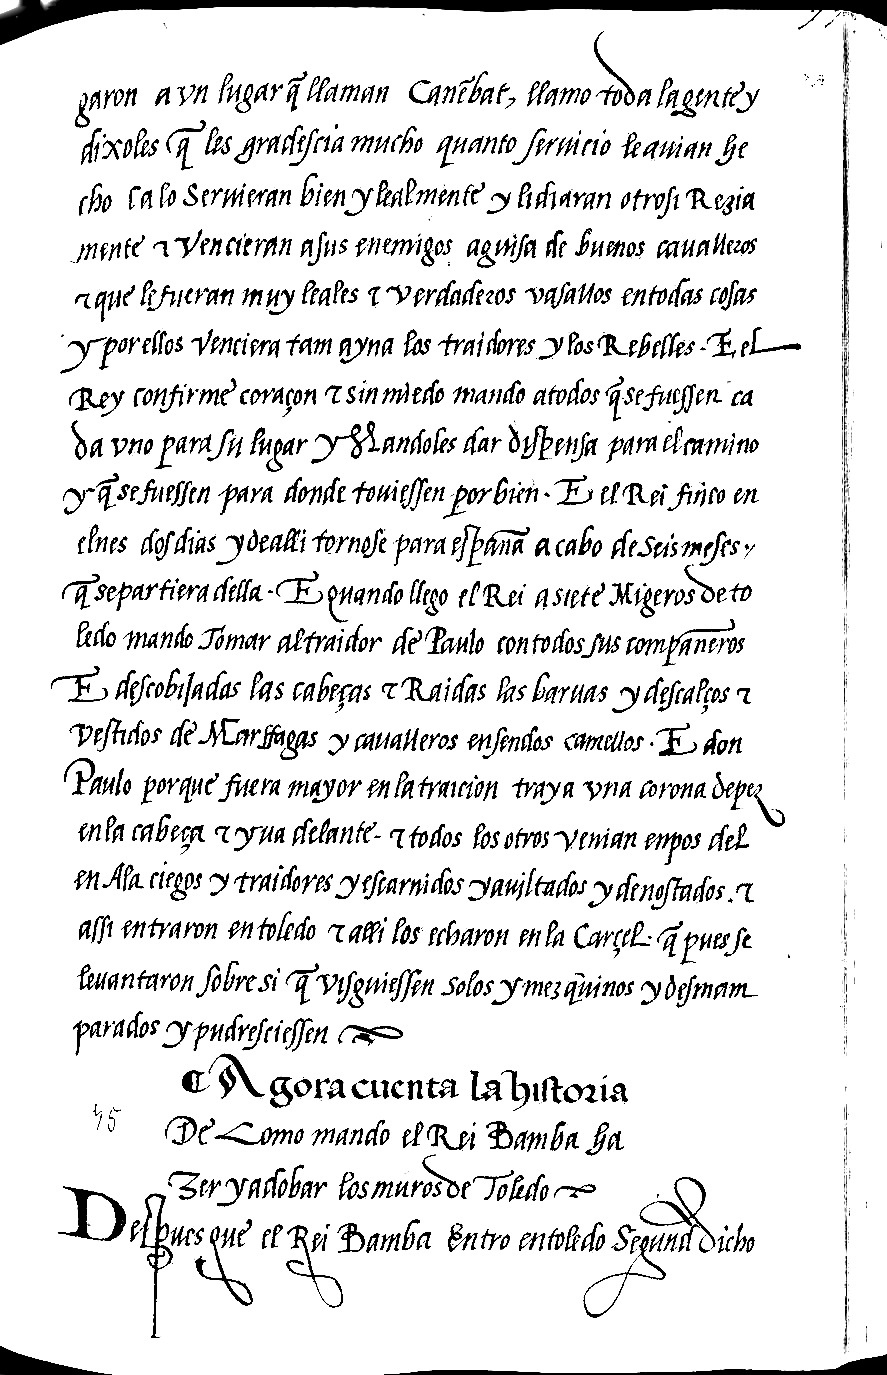 garon a vn lugar q̃ llaman Canẽbat, llamo toda la gente y
dixoles q̃ les gradescia mucho quanto seruicio le auian he
cho Ca lo Seruieran bien y lealmente y lidiaran otrosi Rezia
mente ⁊ Vencieran a sus enemigos aguisa de buenos caualleros
⁊ que le fueran muy leales ⁊ verdaderos vasallos en todas cosas
y por ellos Venciera tam ayna los traidores y los Rebelles. E el
Rey con firme coraçon ⁊ sin miedo mando a todos q̃ se fuessen ca
da vno para su lugar y Mandoles dar dispensa para el camino
y q̃ se fuessen para donde touiessen por bien. E el Rei finco en
elnes dos dias y de alli tornose para españa a cabo de seis meses
q̃ se partiera della. E quando llego el Rei a siete Migeros de to
ledo mando Tomar al traidor de Paulo con todos sus compañeros
E descobijadas las cabeças ⁊ Raidas las baruas y descalços ⁊
vestidos de Marffagas y caualleros en sendos camellos. E don
Paulo porque fuera mayor en la traicion traya vna corona de pez
en la cabeça ⁊ yua delante. ⁊ todos los otros venian en pos del
en Ala ciegos y traidores y escarnidos y auiltados y denostados. ⁊
assi entraron en toledo ⁊ alli los echaron en la Carçel. q̃ pues se
leuantaron sobre si q̃ visguiessen solos y mezquinos y desmam
parados y pudresciessen
¶ Agora cuenta la historia
45
De Como mando el Rei Bamba ha
Zer y adobar los muros de Toledo
Despues que el Rei Bamba Entro en toledo Segund dicho